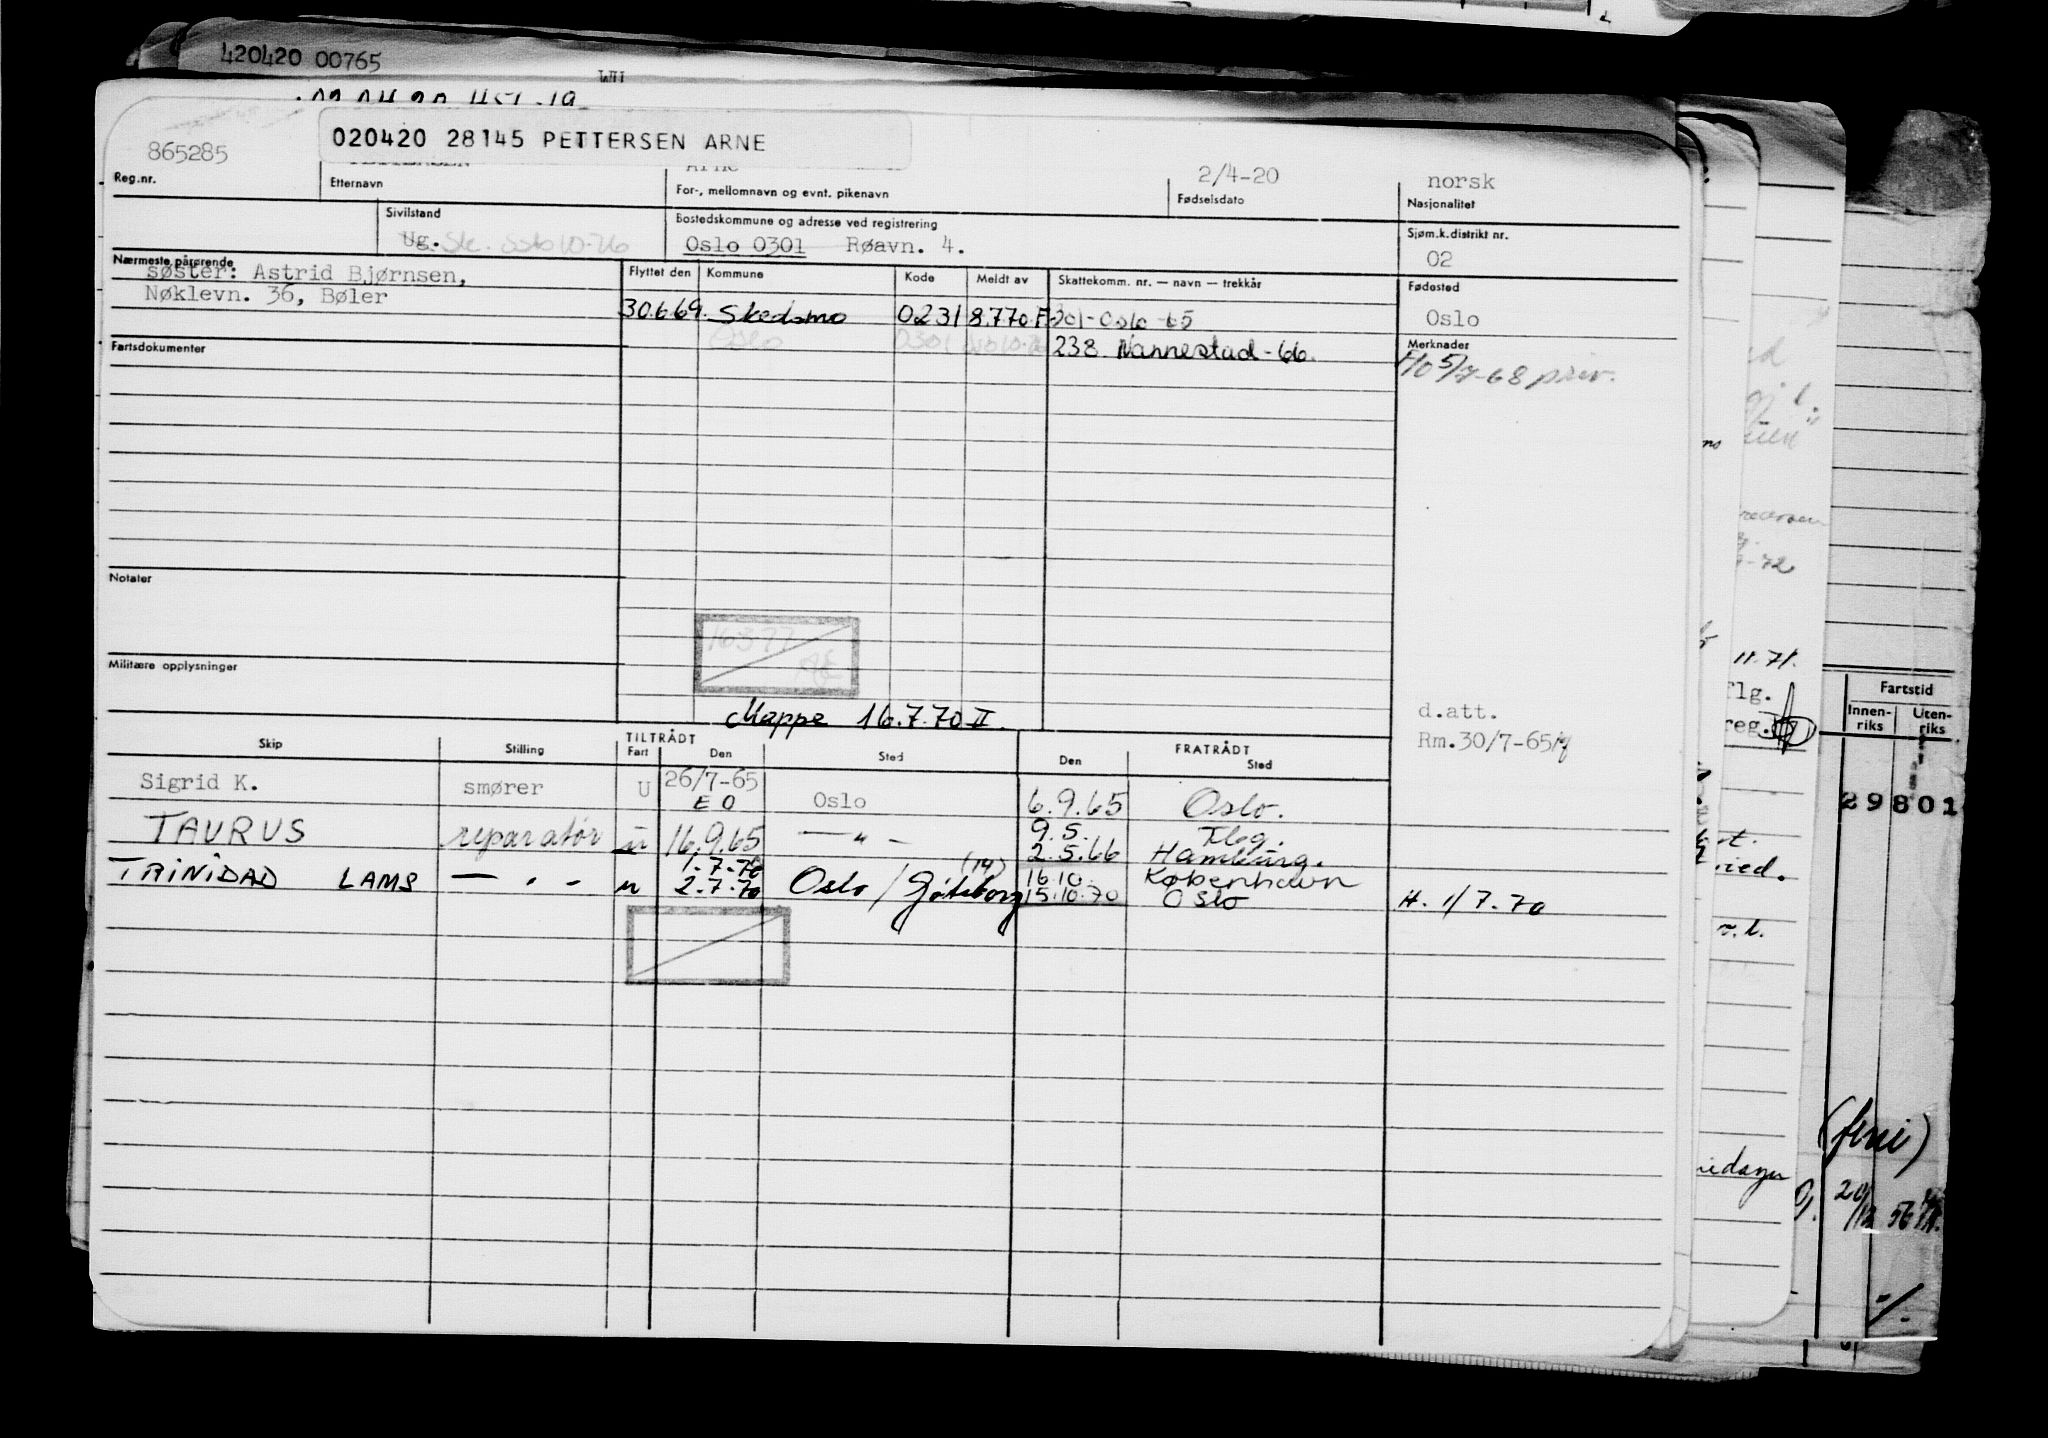 420420 00765
020420 28145 PETTERSEN ARNE
865285
2/4-20
norsk
Reg.nr.
Etternavn
For-, mellomnavn og evnt. pikenavn
Fødselsdato
Nasjonalitet
Sivilstand
Bostedskommune og adresse ved registrering
Sjøm.k.distrikt nr.
Ug.
Oslo 0301 Røavn. 4.
02
Nærmeste pårørende
søster: Astrid Bjørnsen,
Nøklevn. 36, Bøler
Flyttet den
Kommune
Kode
Meldt av
Skattekomm. nr. — navn — trekkår
Fødested
30.6.69. Skedsmo 0231 8.770.F 301-Oslo-65
Oslo
Oslo 0301
238 Nannestad-66.
Fartsdokumenter
Merknader
5/7-68 priv.
Notater
Militære opplysninger
Mappe 16.7.70 II.
d.att.
Rm.30/7-65
Skip
Stilling
TILTRÅDT
Fart
Den
Sted
FRATRÅDT
Den
Sted
Sigrid K. smører U 26/7-65 Oslo 6.9.65 Oslo.
E O
TAURUS reparatør u 16.9.65 —"— 9.5. Flbg.
2.5.66 Hamburg.
TRINIDAD LAMS — " — u 1.7.70 Oslo / Göteborg (14) 16.10. København
2.7.70 15.10.70 Oslo H. 1/7.70
-72
11.71.
flg.
reg.
Fartstid
Innen-
riks
Uten-
riks
29801